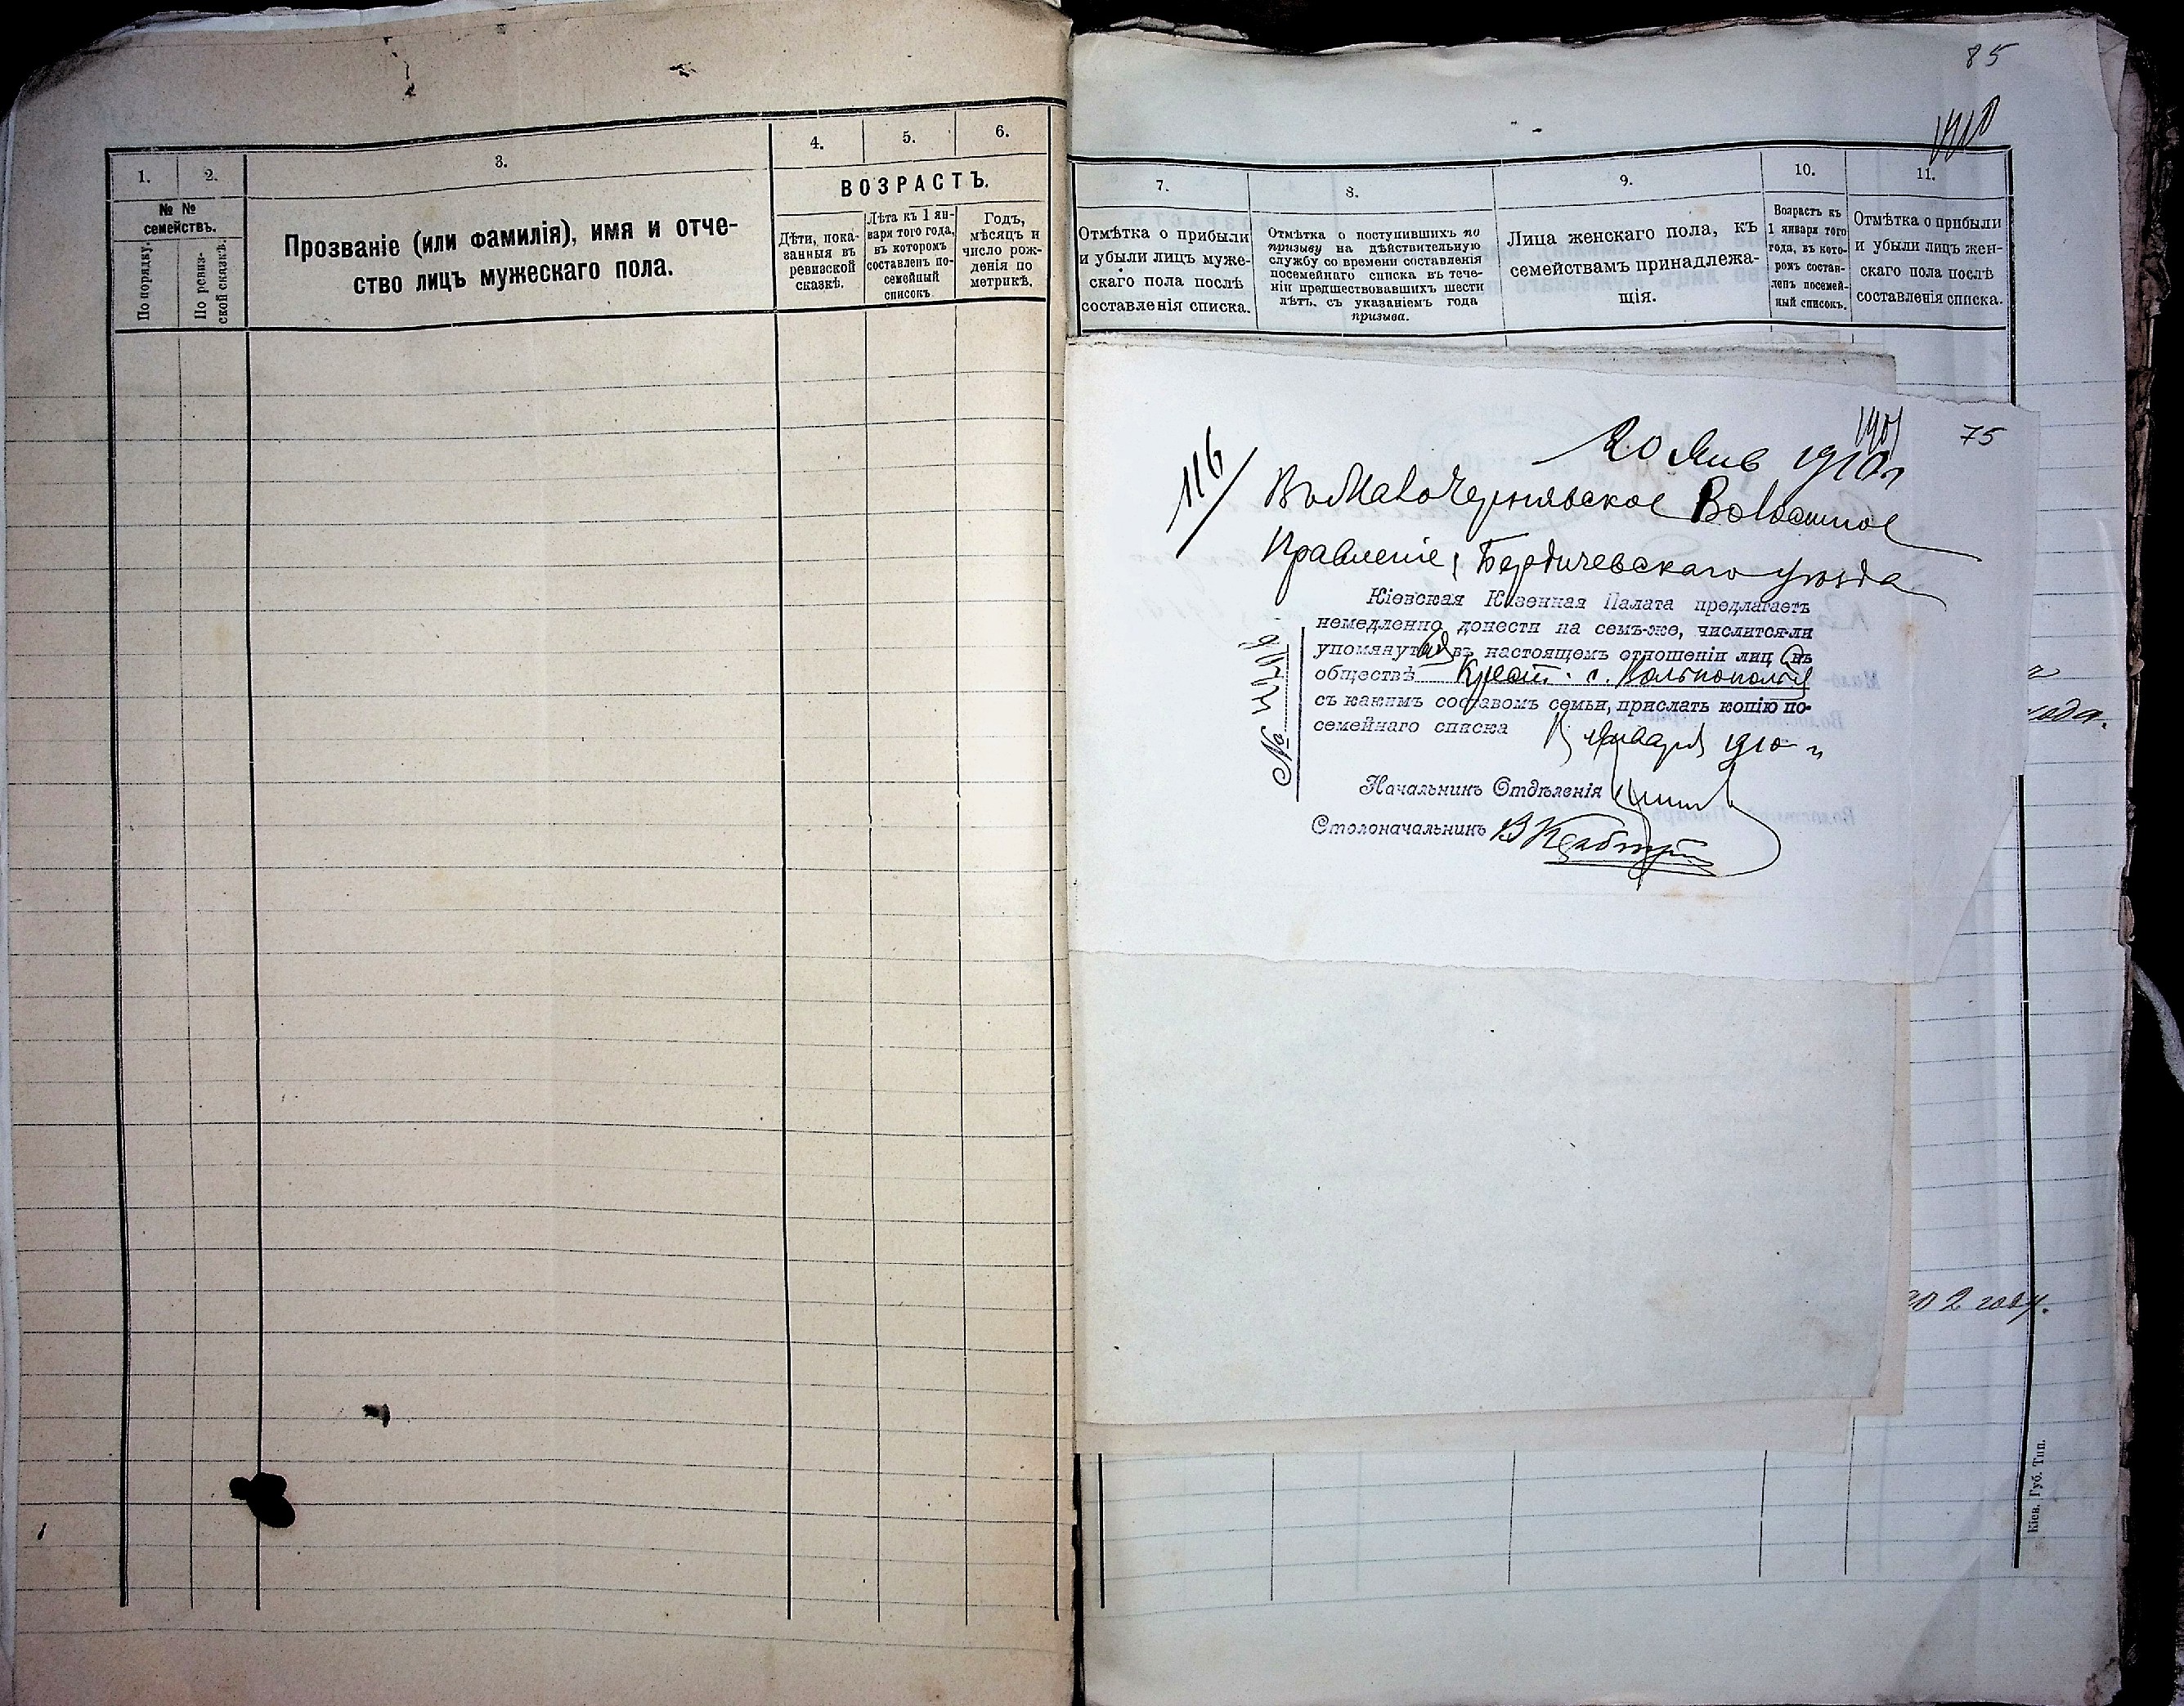 1.
2.
3.
4.
5.
6.
№ №
семействъ.
По порядку.
По ревиз-
ской сказкѣ.
Прозваніе (или фамилія), имя и отче-
ство лицъ мужескаго пола.
ВОЗРАСТЪ.
Дѣти, пока-
занныя въ
ревизской
сказкѣ.
Лѣта къ 1 ян-
варя того года,
въ которомъ
составленъ по-
семейный
списокъ
Годъ,
мѣсяцъ и
число рож-
денія по
метрикѣ.
85
7.
8.
9.
10.
11.
Отмѣтка о прибыли
и убыли лицъ муже-
скаго пола послѣ
составленія списка.
Отмѣтка о поступившихъ по
призыву на дѣйствительную
службу со времени составленія
посемейнаго списка въ тече-
ніи предшествовавшихъ шести
лѣтъ, съ указаніемъ года
призыва.
Лица женскаго пола, къ
семействамъ принадлежа-
щія.
Возрастъ къ
1 января того
года, въ кото-
ромъ состав-
ленъ посемей-
ный списокъ.
Отмѣтка о прибыли
и убыли лицъ жен-
скаго пола послѣ
составленія списка.
75
20 Янв 1910 г
116
Въ МалоЧернявское Волостное
Правленіе, Бердичевскаго уѣзда
Кіевская Казенная Палата предлагаетъ
немедленно донести на семъ-же, числится-ли
упомянутая въ настоящемъ отношеніи лиц въ
обществѣ Крест. с.
съ какимъ составомъ семьи, прислать копію по-
семейнаго списка
января 1910 г.
№
Начальникъ Отдѣленія
Столоначальникъ
года.
02 году.
Кіев. Губ. Тип.